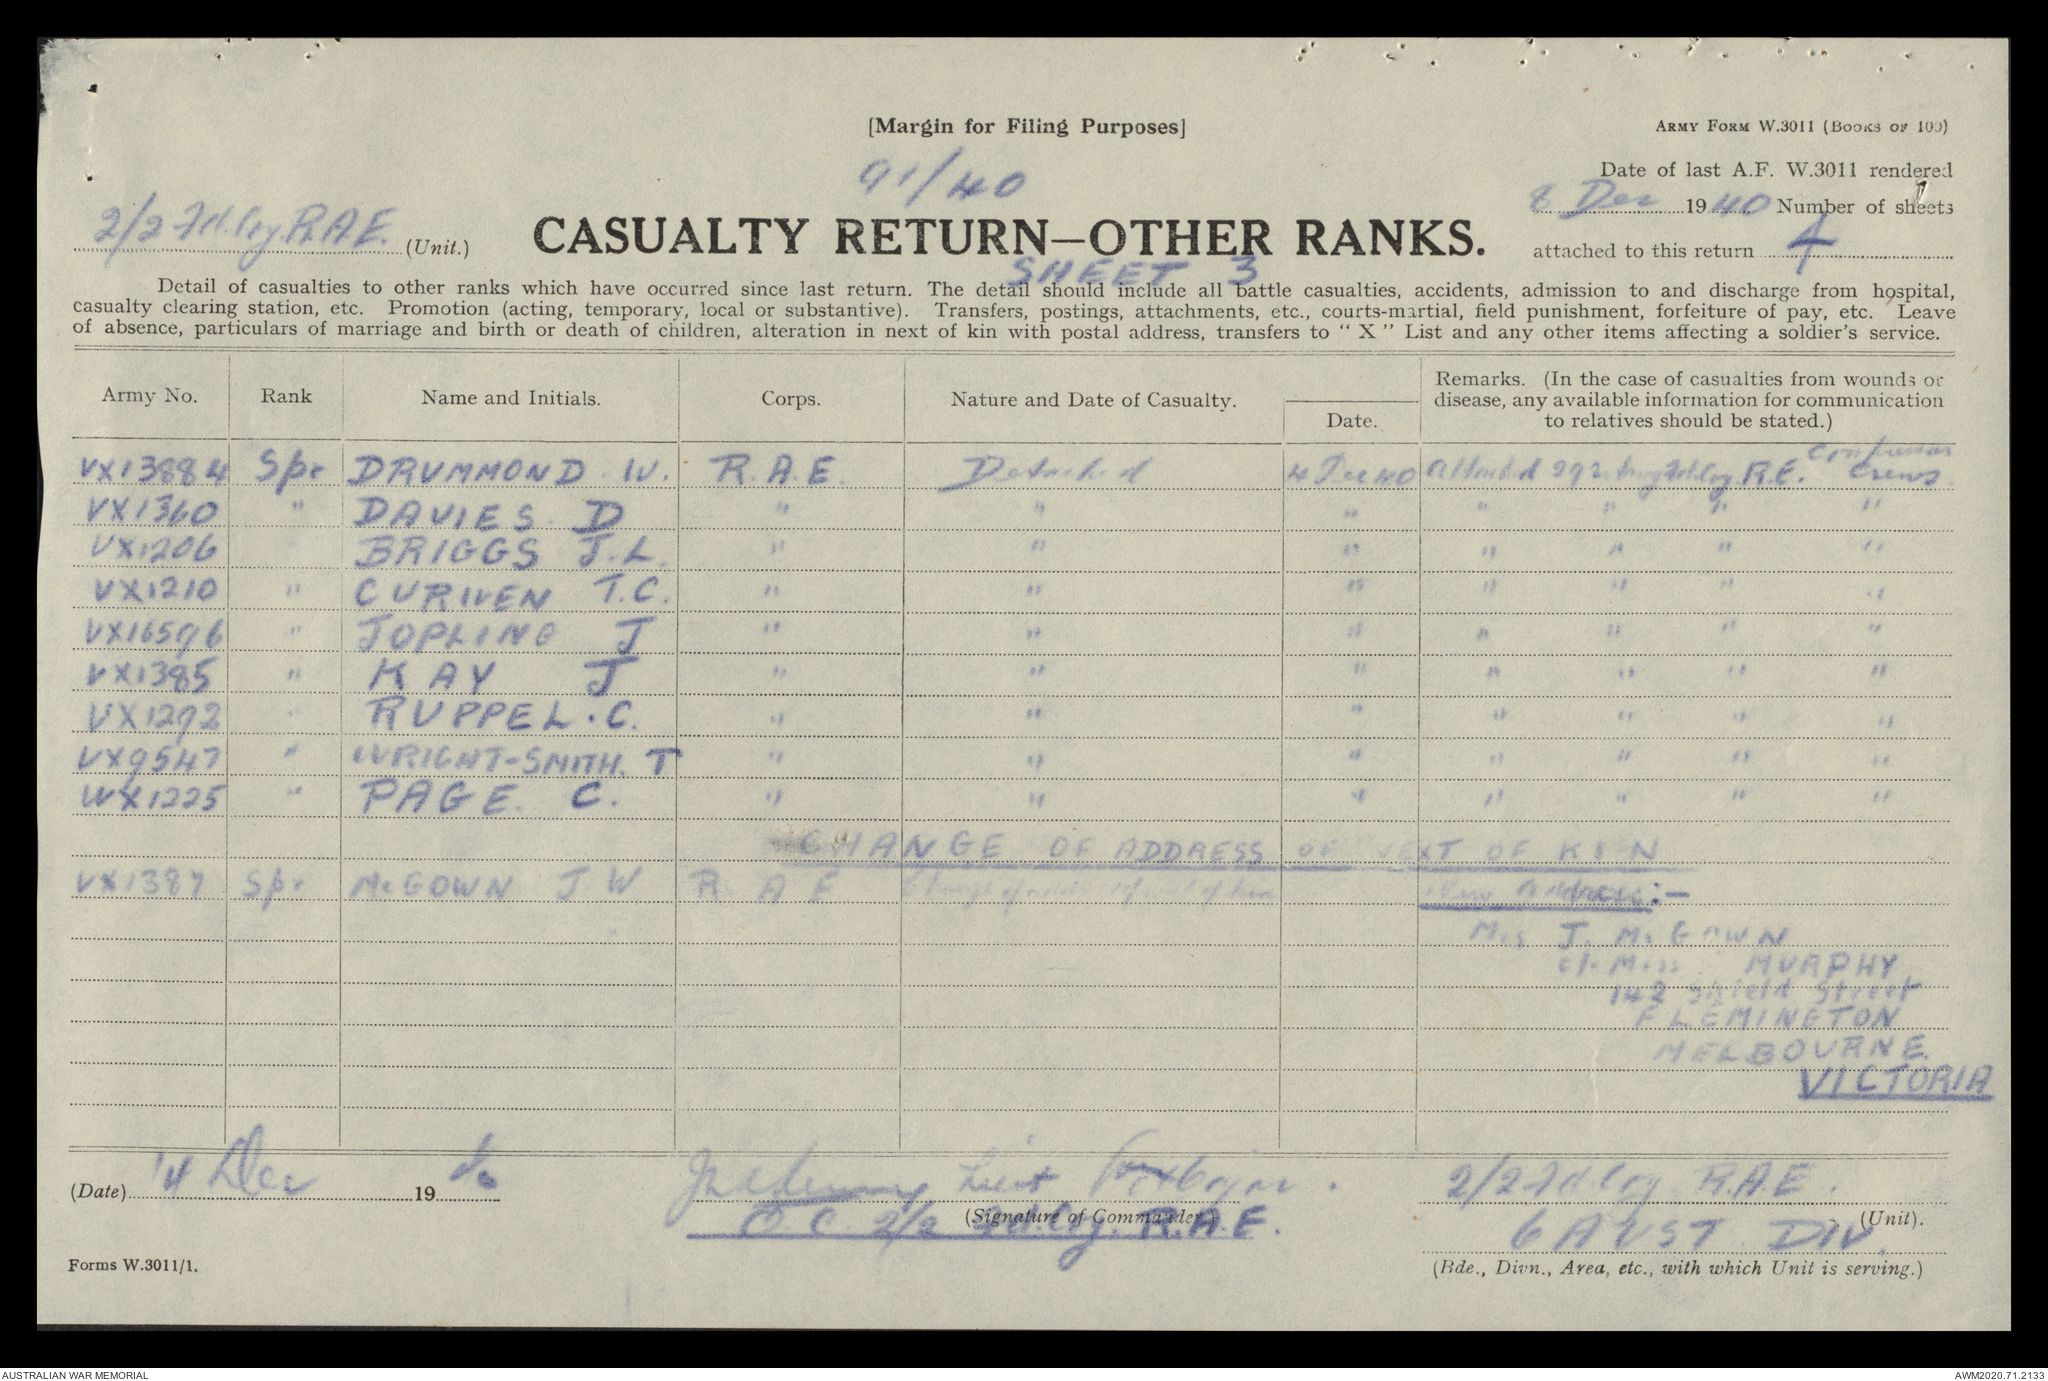 [Margin for Filing Purposes]
ARMY FORM W.3011 (BOOKS OF 100)
91/40
Date of last A.F. W.3011 rendered
8 Dec 1940 Number of sheets
attached to this return 4
2/2 Fd. Coy R.A.E. (Unit.)
CASUALTY RETURN—OTHER RANKS.
SHEET 3
Detail of casualties to other ranks which have occurred since last return. The detail should include all battle casualties, accidents, admission to and discharge from hospital,
casualty clearing station, etc. Promotion (acting, temporary, local or substantive). Transfers, postings, attachments, etc., courts-martial, field punishment, forfeiture of pay, etc. Leave
of absence, particulars of marriage and birth or death of children, alteration in next of kin with postal address, transfers to " X " List and any other items affecting a soldier's service.
Army No. Rank Name and Initials. Corps. Nature and Date of Casualty. Date. Remarks. (In the case of casualties from wounds or
disease, any available information for communication
to relatives should be stated.)
VX13884 Spr DRUMMOND W. R.A.E. Detached 4 Dec 40 Attached 292 Fd. Coy R.E. Compressor Crews.
VX1360 " DAVIES D " " " " " " "
VX1206 BRIGGS J.L. " " " " " " "
VX1210 " CURWEN T.C. " " " " " " "
VX16576 " JOPLING J " " " " " " "
VX1385 " KAY J " " " " " " "
VX1272 " RUPPEL . C. " " " " " " "
VX9547 " WRIGHT-SMITH. T " " " " " " "
WX1225 " PAGE. C. " " " " " " "
CHANGE OF ADDRESS OF NEXT OF KIN
VX1387 Spr McGOWN J W R A E Change of address of next of kin New Address :-
Mrs J. McGOWN
c/- Miss MURPHY
142 Shield Street
FLEMINGTON
MELBOURNE
VICTORIA
(Date) 14 Dec 1940
Lieut
(Signature of Commander.)
O.C. 2/2 Fd. Coy. R.A.E.
2/2 Fd. Coy R.A.E.
(Unit).
6 AUST DIV.
(Bde., Divn., Area, etc., with which Unit is serving.)
Forms W.3011/1.
AUSTRALIAN WAR MEMORIAL
AWM2020.71.2133